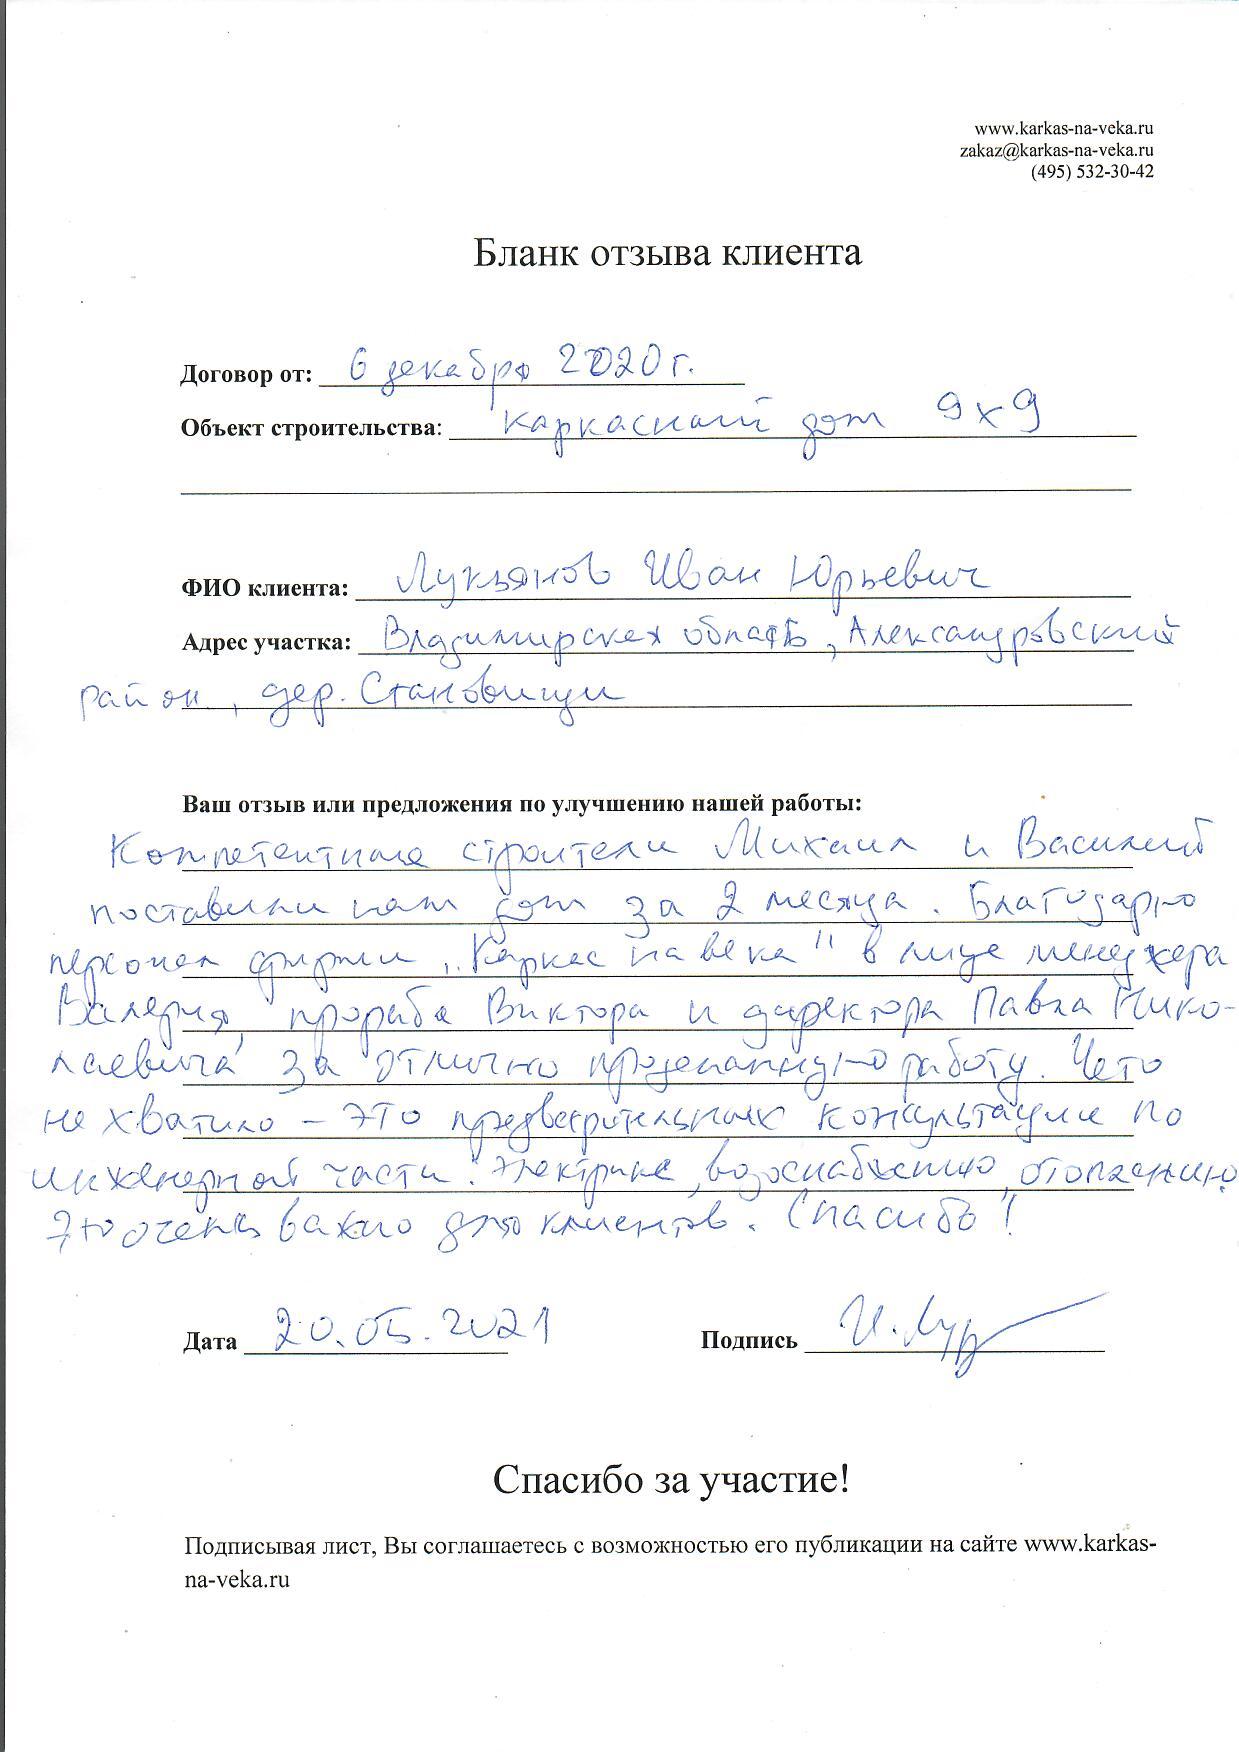 www.karkas-na-veka.ru
zakaz@karkas-na-veka.ru
(495) 532-30-42
Бланк отзыва клиента
Договор от: 6 декабря 2020 г.
Объект строительства: каркасный дом 9х9
ФИО клиента: Лукьянов Иван Юрьевич
Адрес участка: Владимирская область, Александровский
район, дер. Становищи
Ваш отзыв или предложения по улучшению нашей работы:
Компетентные строители Михаил и Василий
поставили нам дом за 2 месяца. Благодарю
персонал фирмы „Каркас на века" в лице менеджера
Валерия, прораба Виктора и директора Павла Нико-
лаевича за отлично проделанную работу. Чего
не хватило – это предварительных консультации по
инженерной части: электрике, водоснабжению, отоплению.
Это очень важно для клиентов. Спасибо!
Дата 20.05.2021 Подпись И. Лук
Спасибо за участие!
Подписывая лист, Вы соглашаетесь с возможностью его публикации на сайте www.karkas-
na-veka.ru